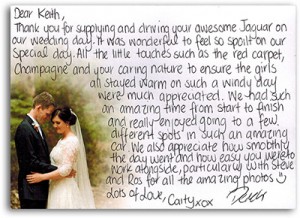 Dear Keith,
Thank you for supplying and driving your awesome Jaguar on
our wedding day. It was wonderful to feel so spoilt on our
special day. All the little touches such as the red carpet,
Champagne and your caring nature to ensure the girls
all stayed warm on such a windy day
were much appreciated. We had such
an amazing time from start to finish
and really enjoyed going to a few
different spots in such an amazing
car. We also appreciate how smoothly
the day went and how easy you were to
work alongside, particularly with Steve
and Ros for all the amazing photos ☺
Lots of Love, Carly xox